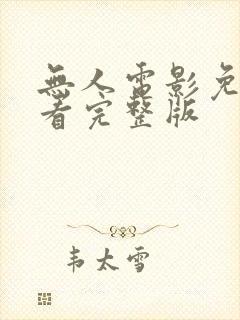 無人電影免
看完整版
韦太雪